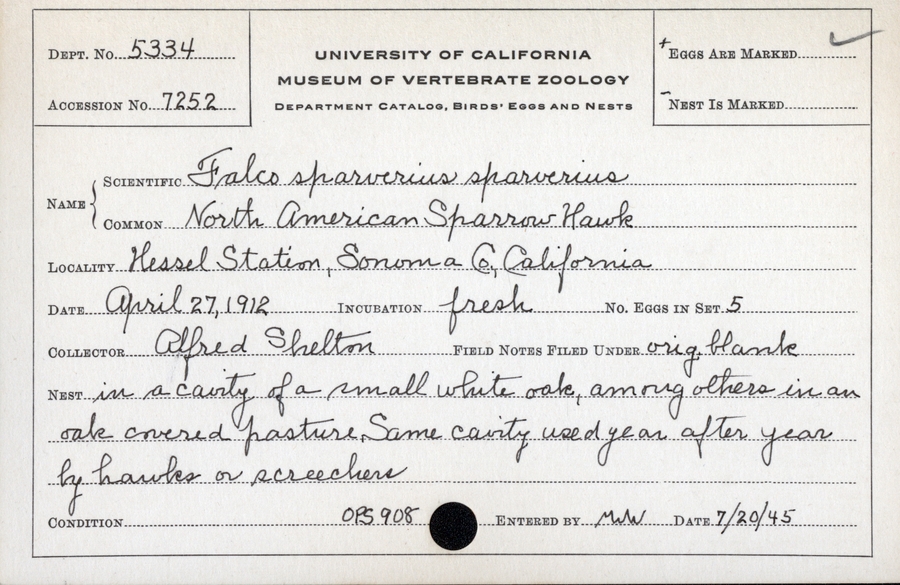 DEPT. No. 5334
ACCESSION No. 7252
UNIVERSITY OF CALIFORNIA
MUSEUM OF VERTEBRATE ZOOLOGY
DEPARTMENT CATALOG, BIRDS' EGGS AND NESTS
+ EGGS ARE MARKED ✓
- NEST IS MARKED
NAME { SCIENTIFIC Falco sparverius sparverius
COMMON North American Sparrow Hawk
LOCALITY Hessel Station, Sonoma Co., California
DATE April 27, 1912 INCUBATION fresh No. EGGS IN SET 5
COLLECTOR Alfred Shelton FIELD NOTES FILED UNDER orig. blank
NEST in a cavity of a small white oak, among others in an
oak covered pasture. Same cavity used year after year
by hawks or screechers
CONDITION OPS 908 ENTERED BY MW DATE 7/20/45